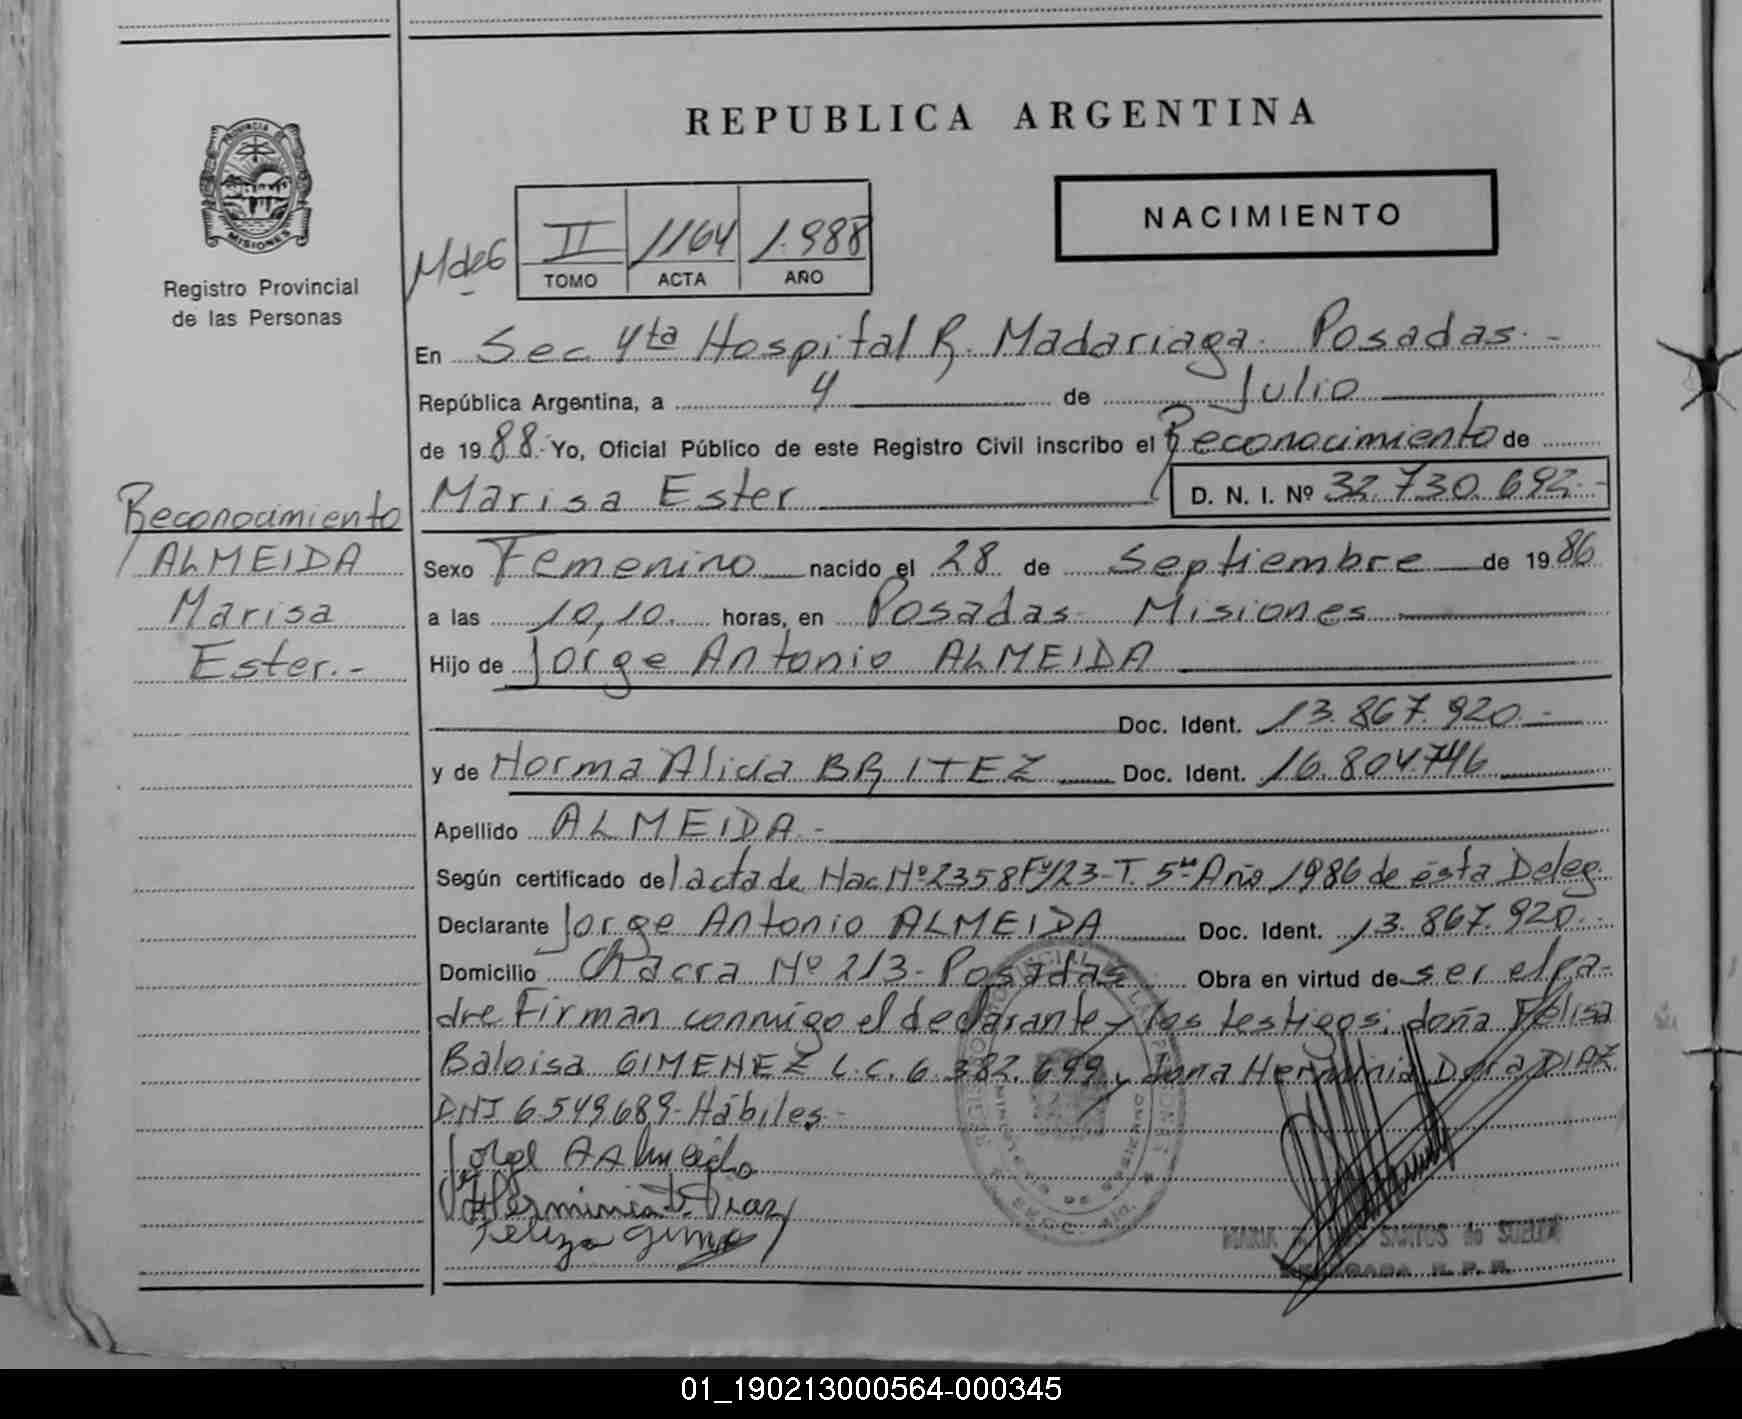 REPUBLICA ARGENTINA
PROVINCIA DE
MISIONES
Registro Provincial
de las Personas
NACIMIENTO
II 1164 1.988
TOMO ACTA AÑO
En Sec 4ta Hospital R. Madariaga. Posadas.-
República Argentina, a 4 de Julio
de 1988.- Yo, Oficial Público de este Registro Civil inscribo el Reconocimiento de
Marisa Ester D. N. I. Nº 32.730.692.-
Reconocimiento
ALMEIDA
Marisa
Ester.-
Sexo Femenino nacido el 28 de Septiembre de 1986
a las 10,10. horas, en Posadas Misiones
Hijo de Jorge Antonio ALMEIDA
Doc. Ident. 13.867.920.-
y de Norma Alicia BRITEZ Doc. Ident. 16.804.746
Apellido ALMEIDA.-
Según certificado del acta de Nac Nº 2358 Fº 123-T. 5to Año 1986 de ésta Deleg.
Declarante Jorge Antonio ALMEIDA Doc. Ident. 13.867.920.-
Domicilio Chacra Nº 213- Posadas Obra en virtud de ser el pa-
dre Firman conmigo el declarante y los testigos; doña Felisa
Baloisa GIMENEZ L.C. 6.382.699 y dona Herminia Dora DIAZ
DNI 6.549.689- Hábiles.-
Jorge A Almeida
Herminia D. Diaz
Feliza
MARIA SANTOS de
01_190213000564-000345